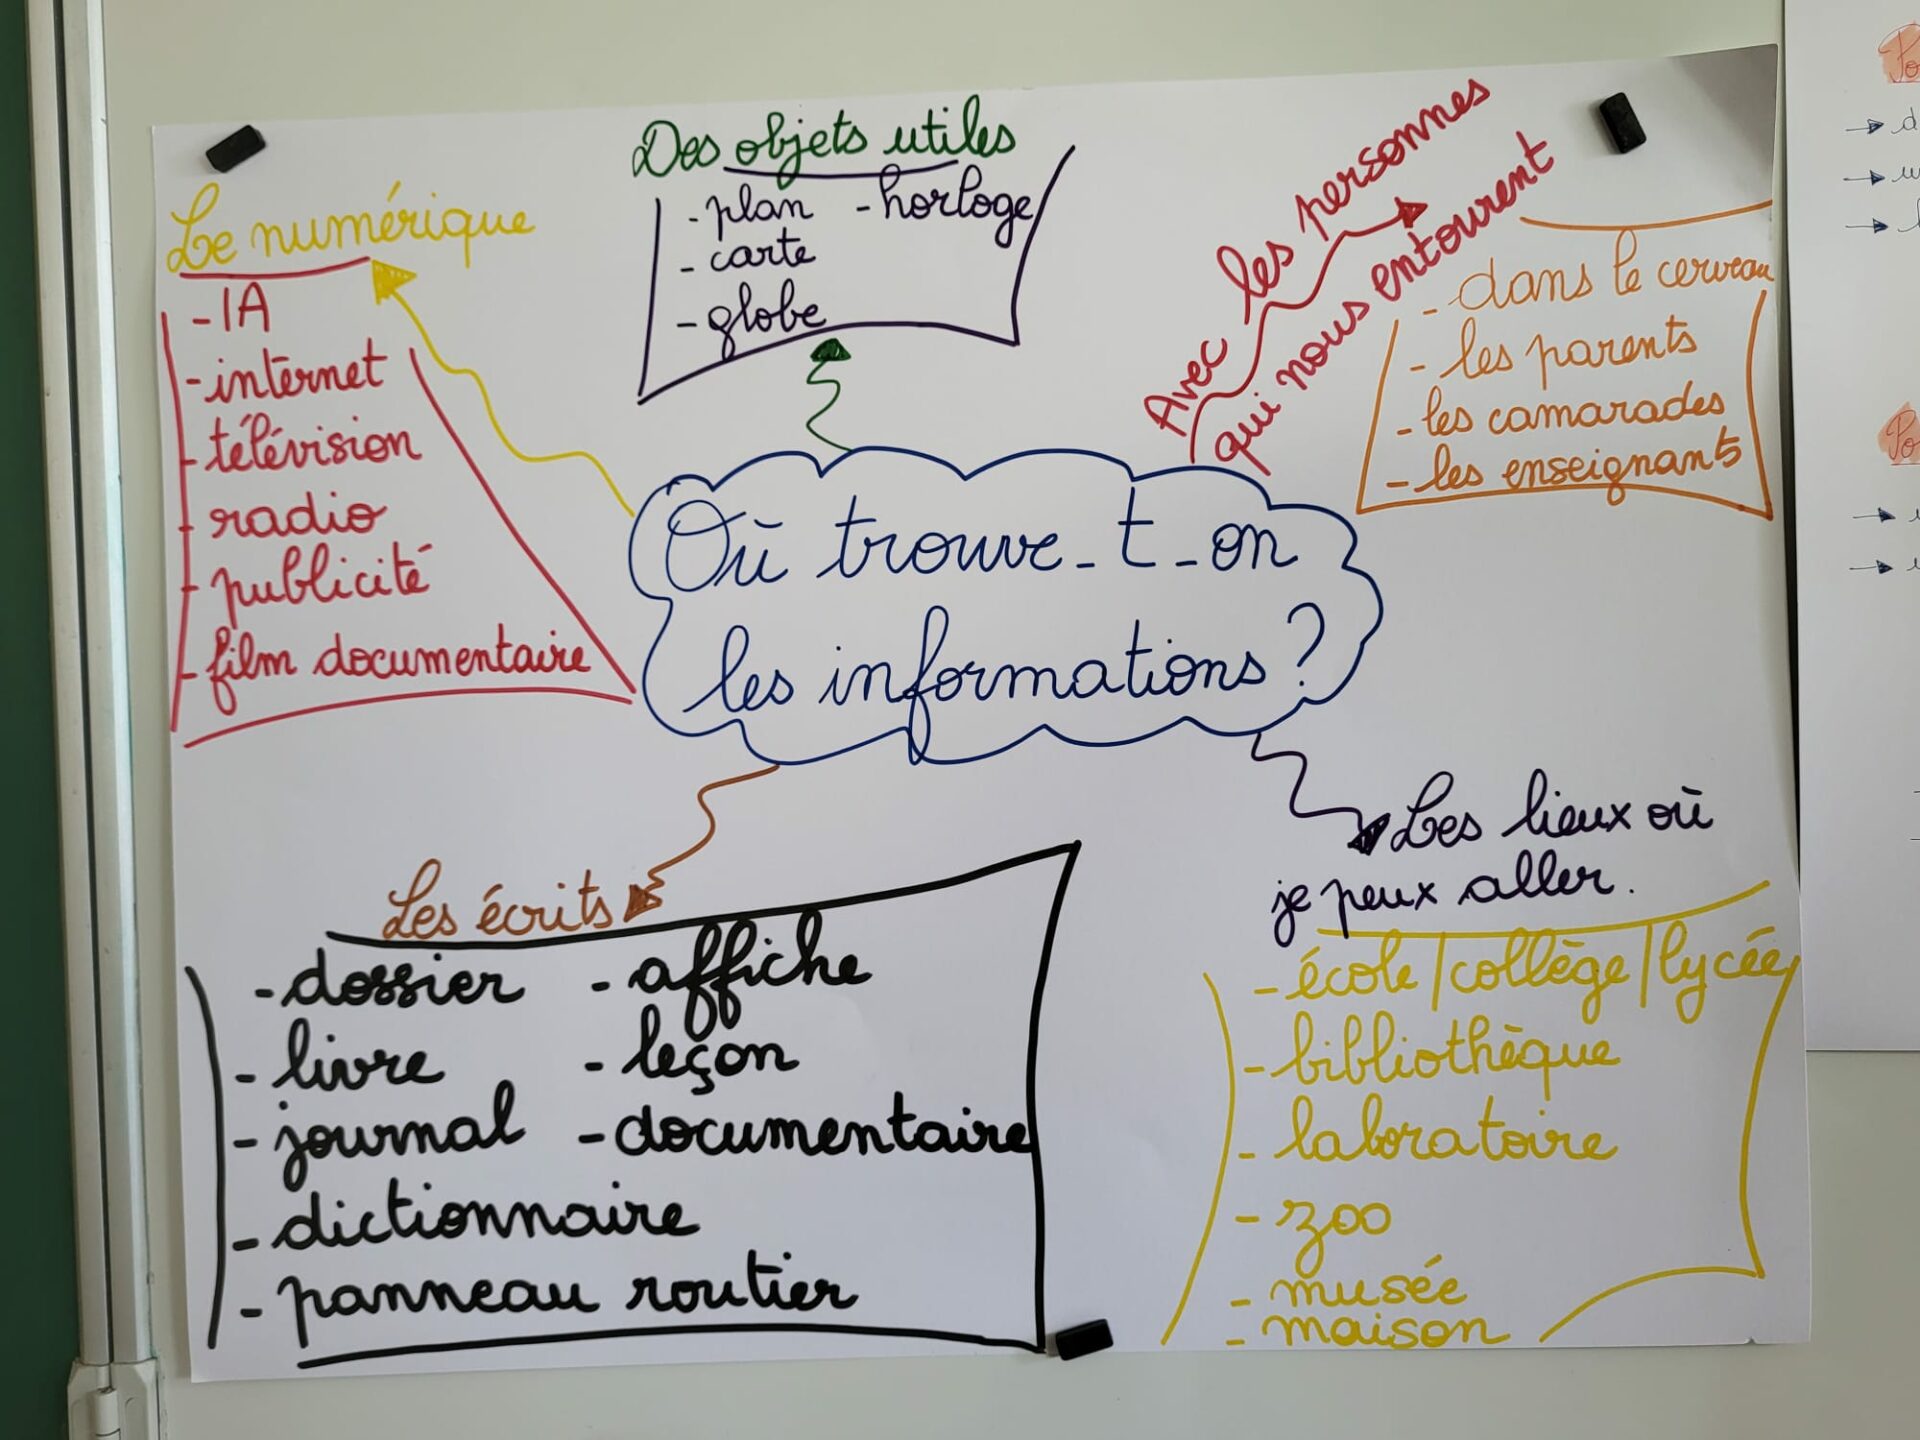 Des objets utiles
- plan - horloge
- carte
- globe
Le numérique
- IA
- internet
- télévision
- radio
- publicité
- film documentaire
Avec les personnes
qui nous entourent
- dans le cerveau
- les parents
- les camarades
- les enseignants
Où trouve-t-on
les informations ?
Les écrits
- dossier - affiche
- livre - leçon
- journal - documentaire
- dictionnaire
- panneau routier
Les lieux où
je peux aller.
- école/collège/lycée
- bibliothèque
- laboratoire
- zoo
- musée
- maison